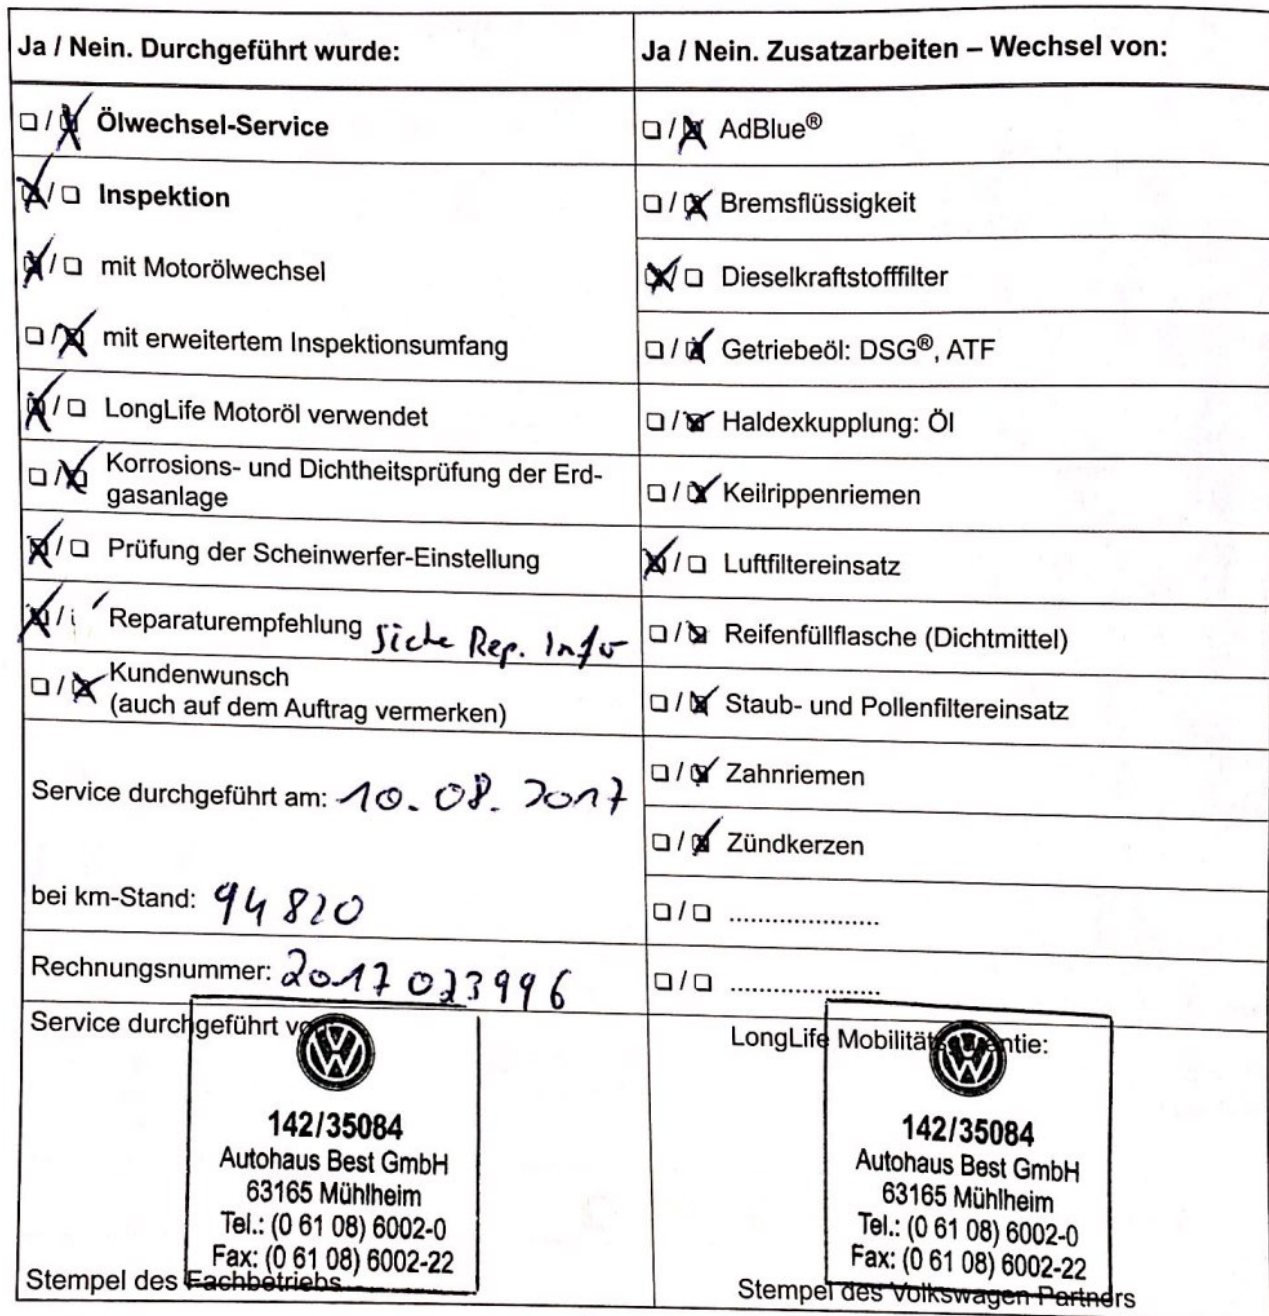 Ja / Nein. Durchgeführt wurde:
☐ / ☒ Ölwechsel-Service
☒ / ☐ Inspektion
☒ / ☐ mit Motorölwechsel
☐ / ☒ mit erweitertem Inspektionsumfang
☒ / ☐ LongLife Motoröl verwendet
☐ / ☒ Korrosions- und Dichtheitsprüfung der Erd-
gasanlage
☒ / ☐ Prüfung der Scheinwerfer-Einstellung
☒ / Reparaturempfehlung siehe Rep. Info
☐ / ☒ Kundenwunsch
(auch auf dem Auftrag vermerken)
Service durchgeführt am: 10.08.2017
bei km-Stand: 94820
Rechnungsnummer: 2017023996
Service durchgeführt
142/35084
Autohaus Best GmbH
63165 Mühlheim
Tel.: (0 61 08) 6002-0
Fax: (0 61 08) 6002-22
Stempel des Fachbetriebs
Ja / Nein. Zusatzarbeiten – Wechsel von:
☐ / ☒ AdBlue®
☐ / ☒ Bremsflüssigkeit
☒ / ☐ Dieselkraftstofffilter
☐ / ☒ Getriebeöl: DSG®, ATF
☐ / ☒ Haldexkupplung: Öl
☐ / ☒ Keilrippenriemen
☒ / ☐ Luftfiltereinsatz
☐ / ☒ Reifenfüllflasche (Dichtmittel)
☐ / ☒ Staub- und Pollenfiltereinsatz
☐ / ☒ Zahnriemen
☐ / ☒ Zündkerzen
☐ / ☐ .....................
☐ / ☐ .....................
LongLife Mobilitätsgarantie:
142/35084
Autohaus Best GmbH
63165 Mühlheim
Tel.: (0 61 08) 6002-0
Fax: (0 61 08) 6002-22
Stempel des Volkswagen Partners